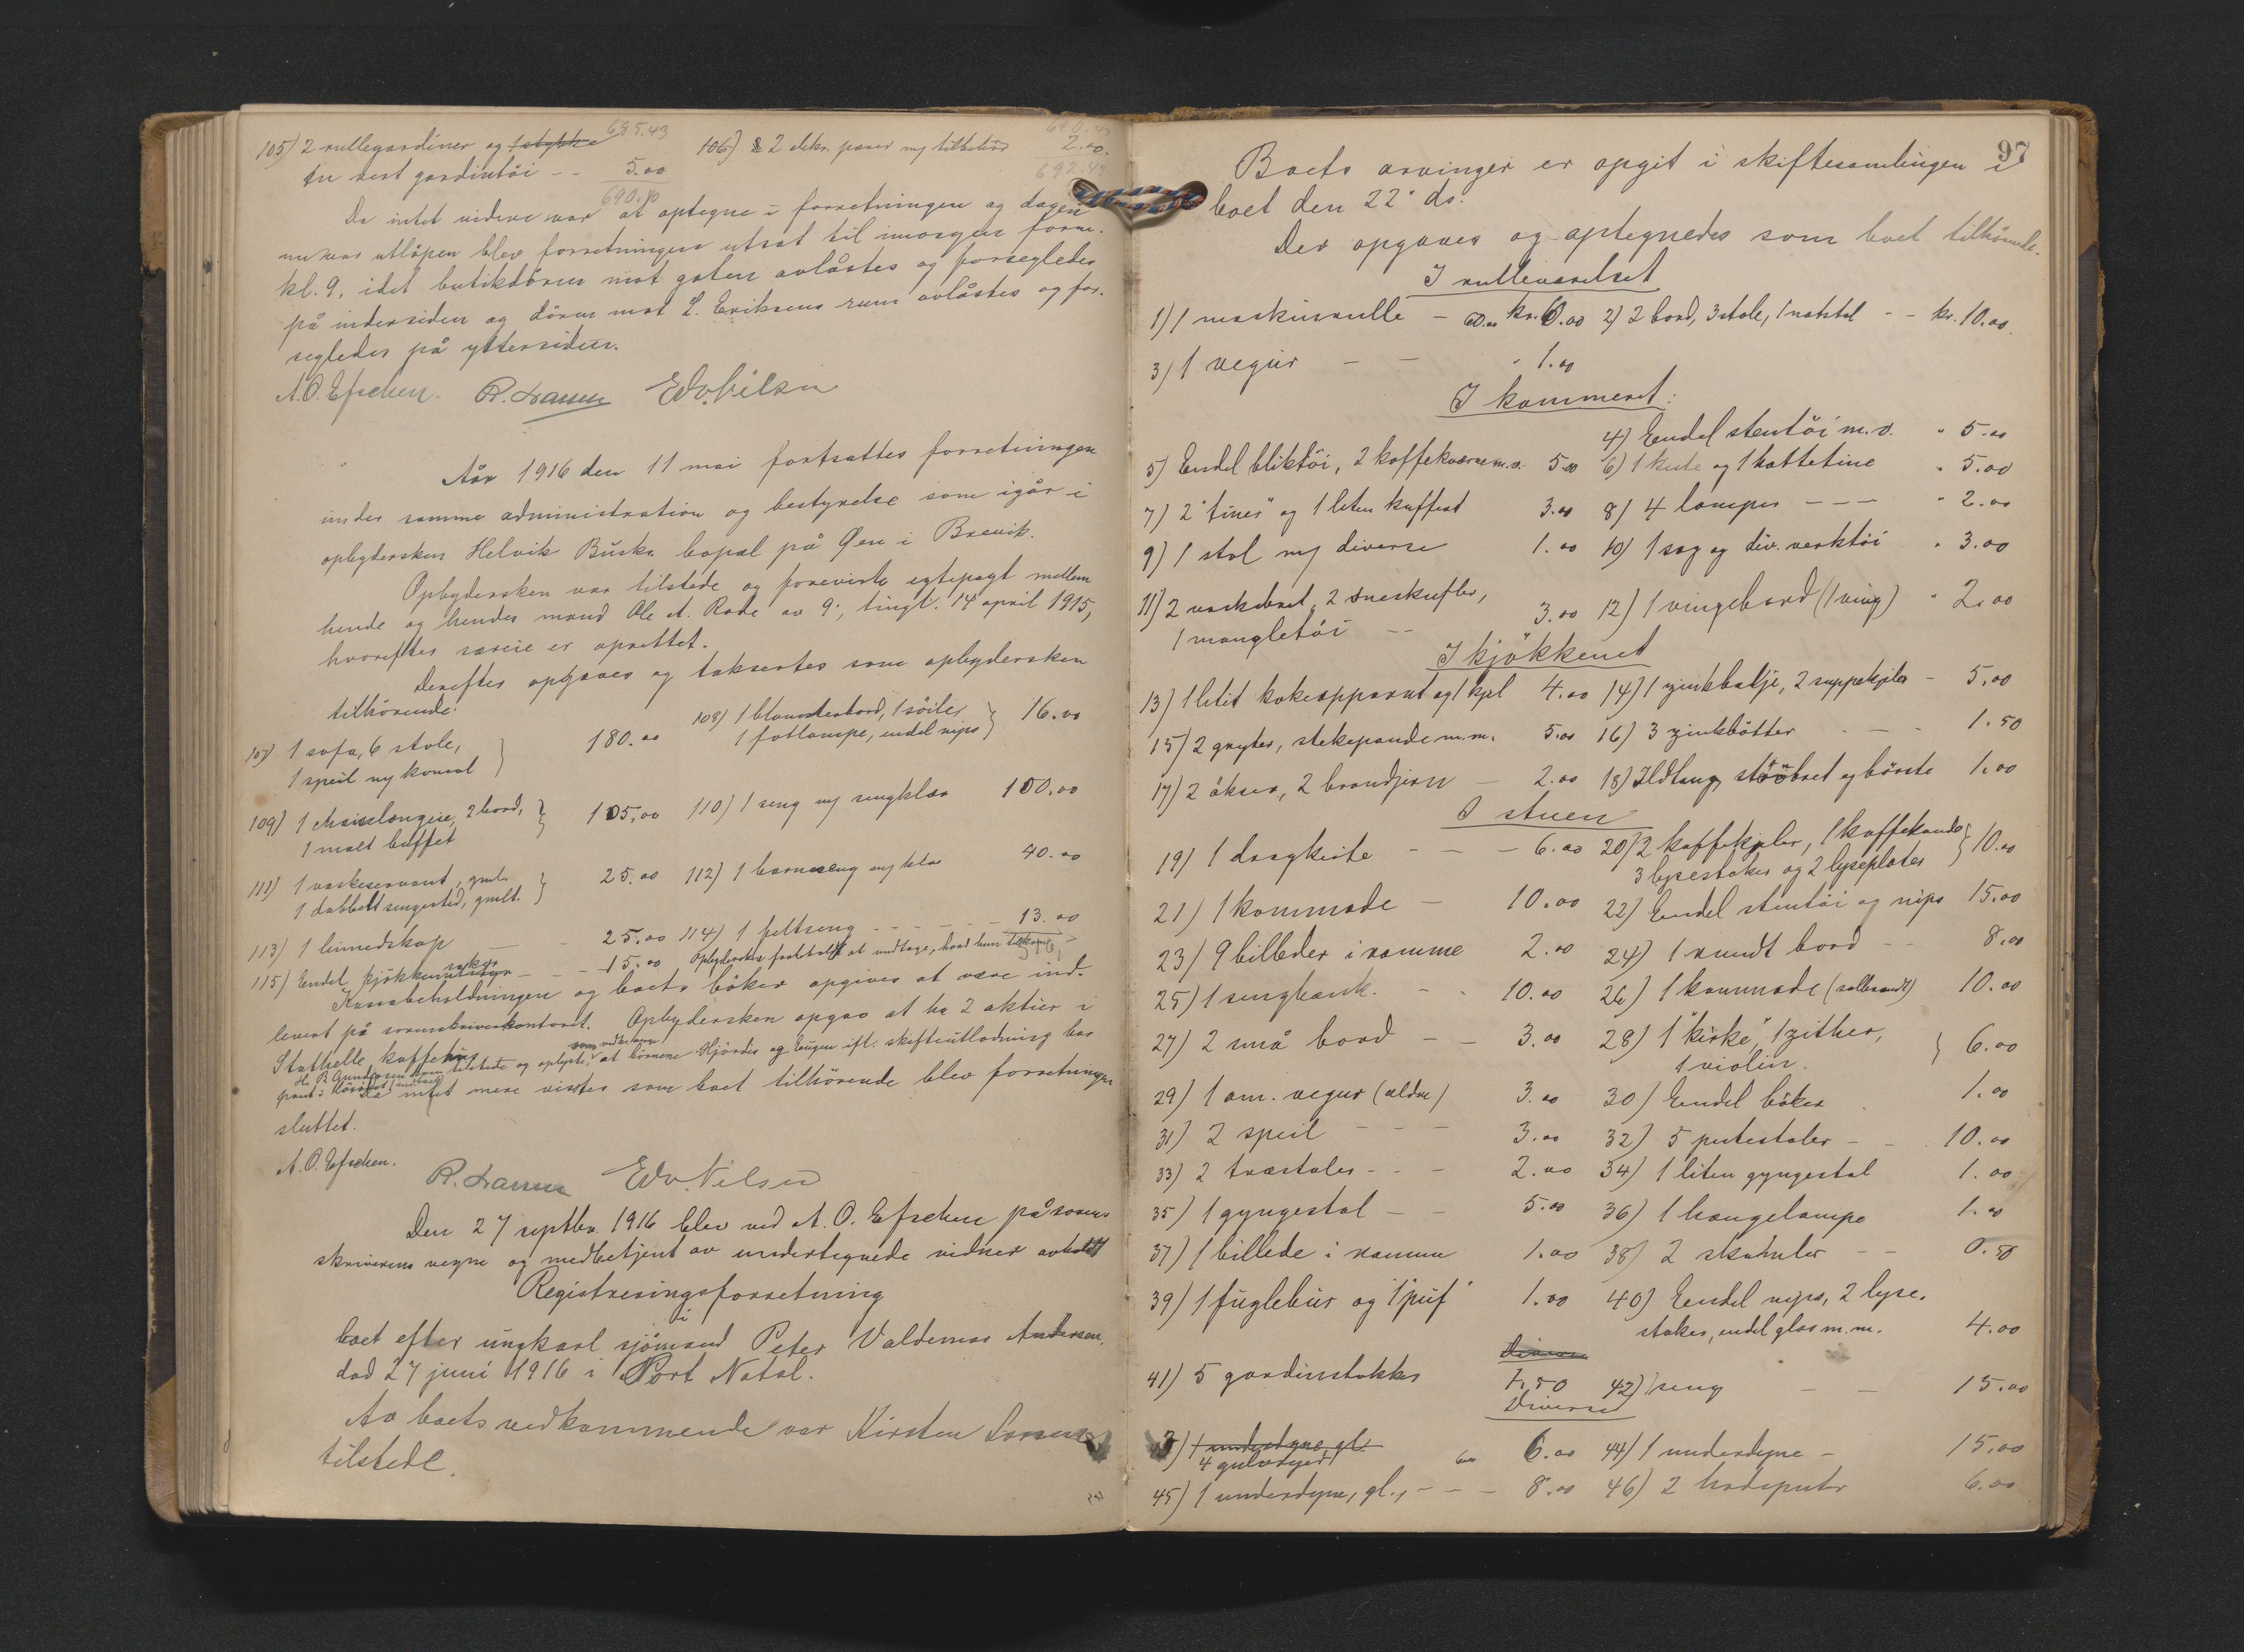 685.43
105) 2 rullegardiner og 1 stykke 106) 2 elekr. pærer m/ tilbehör 2.00.
en rest gardintöi - - 5.00 692.43
690.40
Da intet videre var at optegne i forretningen og dagen
nu var utlöpen blev forretningen utsat til imorgen form.
kl. 9, idet butikdören mot gaten avlåstes og forsegledes
på indersiden og dören mot L. Eriksens rum avlåstes og for-
segledes på yttersiden.
A.O. Efschen. R. Larsen Edv. Nilsen
År 1916 den 11 mai fortsattes forretningen
under samme administration og bestyrelse som igår i
opbydersken Helvik Buskr bopæl på Øen i Brevik.
Opbydersken var tilstede og foreviste egtepagt mellem
hende og hendes mand Ole A. Rode av 9., tingl. 14 april 1915,
hvorefter særeie er oprettet.
Derefter opgaves og taksertes som opbydersken
tilhörende:
107) 1 sofa, 6 stole, 180.00 108) 1 blomsterbord, 1 söiler 16.00
1 speil m/ konsol 1 fotlampe, endel nips
109) 1 chaiselongue, 2 bord, 105.00 110) 1 seng m/ sengklær 100.00
1 malt buffet
111) 1 vaskeservant, gml. 25.00 112) 1 barneseng m/ klær 40.00
1 dobbelt sengested, gmlt.
113) 1 linnedskap - - 25.00 114) 1 feltseng - - - - 13.00
115) Endel kjökkensaker - - 15.00 Opbydersken forbeholdt at undtage, hvad hun tilkom
Kassabeholdningen og boets böker opgives at være ind-
levert på sorenskriverkontoret. Opbydersken opgav at ha 2 aktier i
Stathelle kaffehus
Hr. B. Gundersen var tilstede og oplyste, at börnene Hjördis og ifl. skifteutlodning har
pant i
Da intet mere visstes som boet tilhörende blev forretningen
sluttet.
A.O. Efschen.
R. Larsen Edv. Nilsen
Den 27 septbr. 1916 blev ved A. O. Efschen på soren-
skriverens vegne og medbetjent av undertegnede vidner avholdt
Registreringsforretning
i
boet efter ungkarl sjömand Peter Valdemar Andersen,
död 27 juni 1916 i Port Natal.
Av boets vedkommende var Kirsten Larsen
tilstede.
97
Boets arvinger er opgit i skiftesamlingen i
boet den 22' ds.
Der opgaves og optegnedes som boet tilhörende.
I rulleværelset
1) 1 maskinrulle - kr. 60.00 2) 2 bord, 3 stole, 1 natstol - - kr. 10.00
3) 1 vegur - - " 1.00
I kammeret:
4) Endel stentöi m.v. " 5.00
5) Endel bliktöi, 2 kaffekværne m.v. 5.00 6) 1 kiste og 1 hattetine " 5.00
7) 2 "tiner" og 1 liten kuffert 3.00 8) 4 lamper - - - " 2.00
9) 1 stol m/ diverse 1.00 10) 1 sag og div. verktöi " 3.00
11) 2 vaskebret, 2 sneskufler,
1 mangletöi - - 3.00 12) 1 vingebord (1 ving) " 2.00
I kjökkenet
13) 1 litet kokeapparat og 1 kjel 4.00 14) 1 zinkbalje, 2 suppekjeler - 5.00
15) 2 gryter, stekepande m.m. 5.00 16) 3 zinkbötter - - - 1.50
17) 2 økser, 2 brandjern - 2.00 18) Ildtang, stövbret og börste 1.00
I stuen
19) 1 dragkiste - - - 6.00 20) 2 kaffekjeler, 1 kaffekande 10.00
3 lysestaker og 2 lyseplater
21) 1 kommode - 10.00 22) Endel stentöi og nips 15.00
23) 9 billeder i ramme 2.00 24) 1 rundt bord - - 8.00
25) 1 sengbænk. - - 10.00 26) 1 kommode 10.00
27) 2 små bord - - 3.00 28) 1 "kirke", 1 zither, 6.00
1 violin.
29) 1 am. vegur (ældre) 3.00 30) Endel böker 1.00
31) 2 speil - - - 3.00 32) 5 putestoler - - 10.00
33) 2 træstoler - - - 2.00 34) 1 liten gyngestol 1.00
35) 1 gyngestol - - 5.00 36) 1 hængelampe 1.00
37) 1 billede i ramme 1.00 38) 2 skamler - - 0.50
39) 1 fuglebur og 1 "puf" 1.00 40) Endel nips, 2 lyse-
staker, endel glas m.m. 4.00
Diverse
41) 5 gardinstokker 1.50 42) 1 seng - - 15.00
Diverse
1 underdyne, gl.
4 gulvtyer 6.00 44) 1 underdyne - 15.00
45) 1 underdyne, gl., - - - 8.00 46) 2 hodeputer 6.00